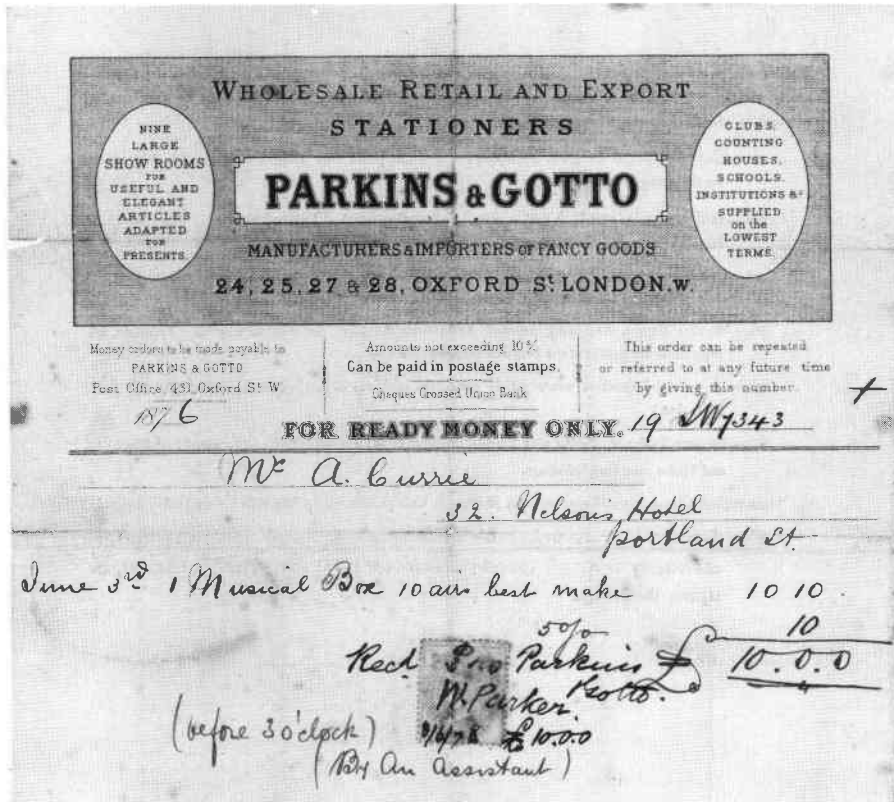 WHOLESALE RETAIL AND EXPORT
STATIONERS
NINE
LARGE
SHOW ROOMS
FOR
USEFUL AND
ELEGANT
ARTICLES
ADAPTED
FOR
PRESENTS.
PARKINS & GOTTO
CLUBS,
COUNTING
HOUSES,
SCHOOLS,
INSTITUTIONS &c
SUPPLIED
on the
LOWEST
TERMS.
MANUFACTURERS & IMPORTERS OF FANCY GOODS
24, 25, 27 & 28, OXFORD St. LONDON. W.
Money orders to be made payable to
PARKINS & GOTTO
Post Office, 431, Oxford St. W
1876
Amounts not exceeding 10/-
Can be paid in postage stamps.
Cheques Crossed Union Bank
This order can be repeated
or referred to at any future time
by giving this number.
FOR READY MONEY ONLY. 19 7343
Mr A. Currie
32. Nelsons Hotel
Portland St.
June 3rd 1 Musical Box 10 airs best make 10 10
5% 10
Recd Pro Parkins & Gotto. £ 10.0.0
W. Parker.
£10.0.0
(before 3 o'clock)
(By An Assistant)